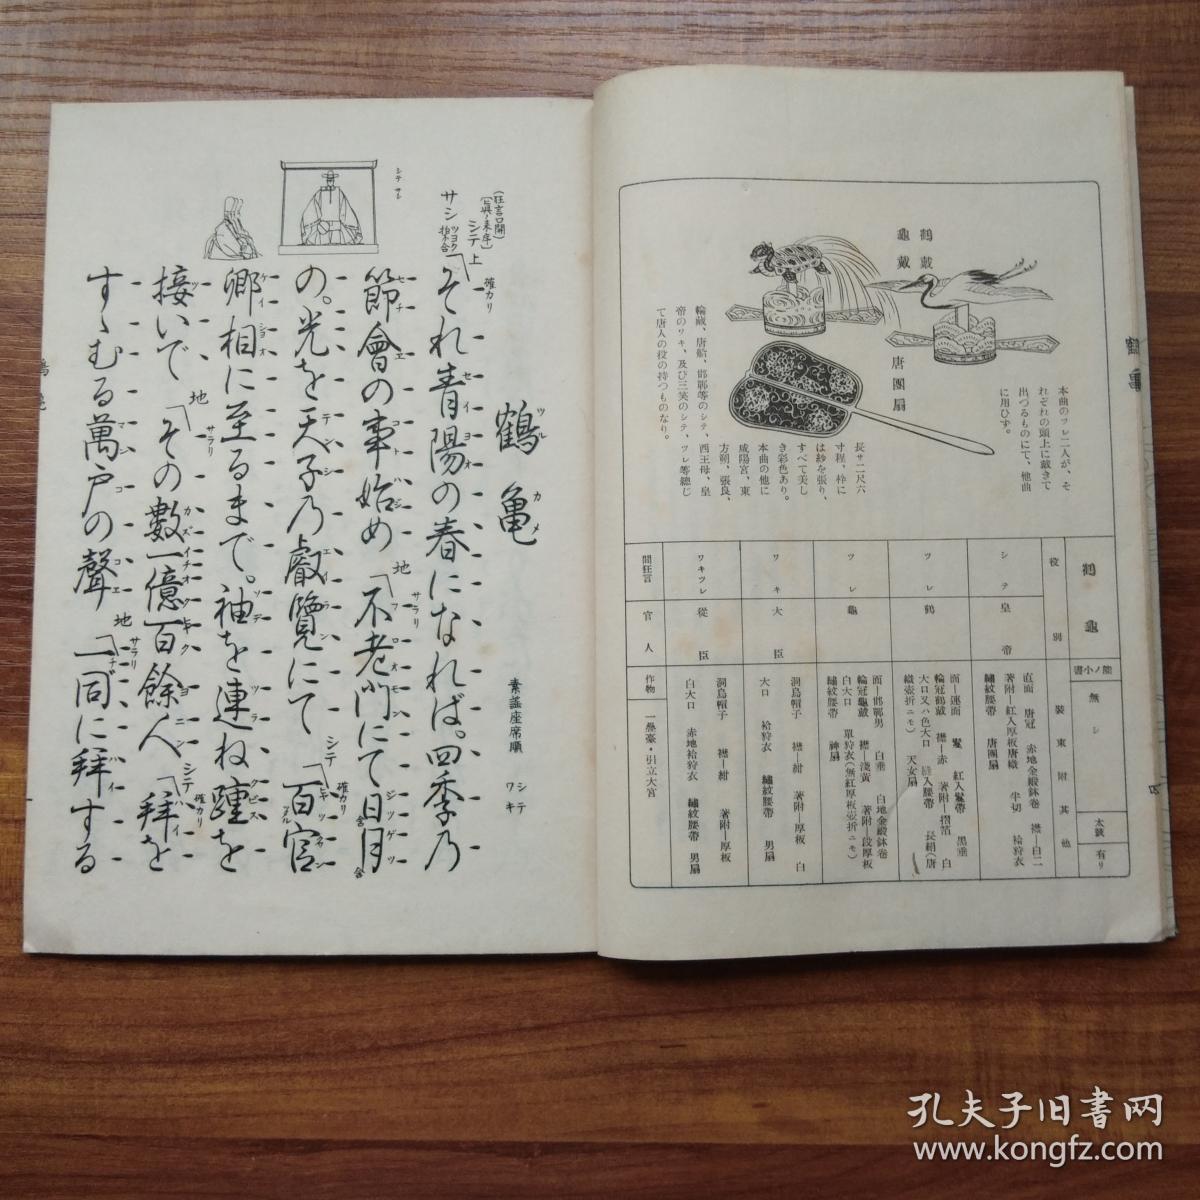 鶴戴
龜戴
唐團扇
本曲のツレ二人が、そ
れぞれの頭上に戴きて
出づるものにて、他曲
に用ひず。
長サ二尺六
寸程、枠に
は紗を張り、
すべて美し
き彩色あり。
本曲の他に
咸陽宮、東
方朔、張良、
輪藏、唐船、邯鄲等のシテ、西王母、皇
帝のワキ、及び三笑のシテ、ツレ等總じ
て唐人の役の持つものなり。
鶴龜
能ノ小書
無シ
太皷
有リ
役別
裝束附其他
シテ
皇帝
直面 唐冠 赤地金緞鉢卷 襟―白二
著附―紅入厚板唐織 半切 袷狩衣
繡紋腰帶 唐團扇
ツレ
鶴
面―連面 鬘 紅入鬘帶 黒垂
輪冠鶴戴 襟―赤 著附―摺箔 白
大口又ハ色大口 縫入腰帶 長絹(唐
織壺折ニモ) 天女扇
ツレ
龜
面―邯鄲男 白垂 白地金緞鉢卷
輪冠龜戴 襟―淺黄 著附―段厚板
白大口 單狩衣(無紅厚板壺折ニモ)
繡紋腰帶 神扇
ワキ
大臣
洞烏帽子 襟―紺 著附―厚板 白
大口 袷狩衣 繡紋腰帶 男扇
ワキツレ
從臣
洞烏帽子 襟―紺 著附―厚板
白大口 赤地袷狩衣 繡紋腰帶 男扇
間狂言
官人
作物
一疊臺・引立大宮
鶴亀
ツルカメ
素謡座席順
シテ
ワキ
(狂言口開)
シテ上
サシ
ツヨク
拍不合
確カリ
それ青陽の春になれば。四季乃
節會の事始め 地 サラリ 不老門にて日月
の。光を天子乃叡覽にて シテ 確カリ 百官
卿相に至るまで。袖を連ね踵を
接いで 地 サラリ その數一億百餘人 シテ 確カリ 拜を
すゝむる萬戸の聲 地 サラリ 一同に拜する
シテ サシ
鶴亀
孔夫子旧书网
www.kongfz.com